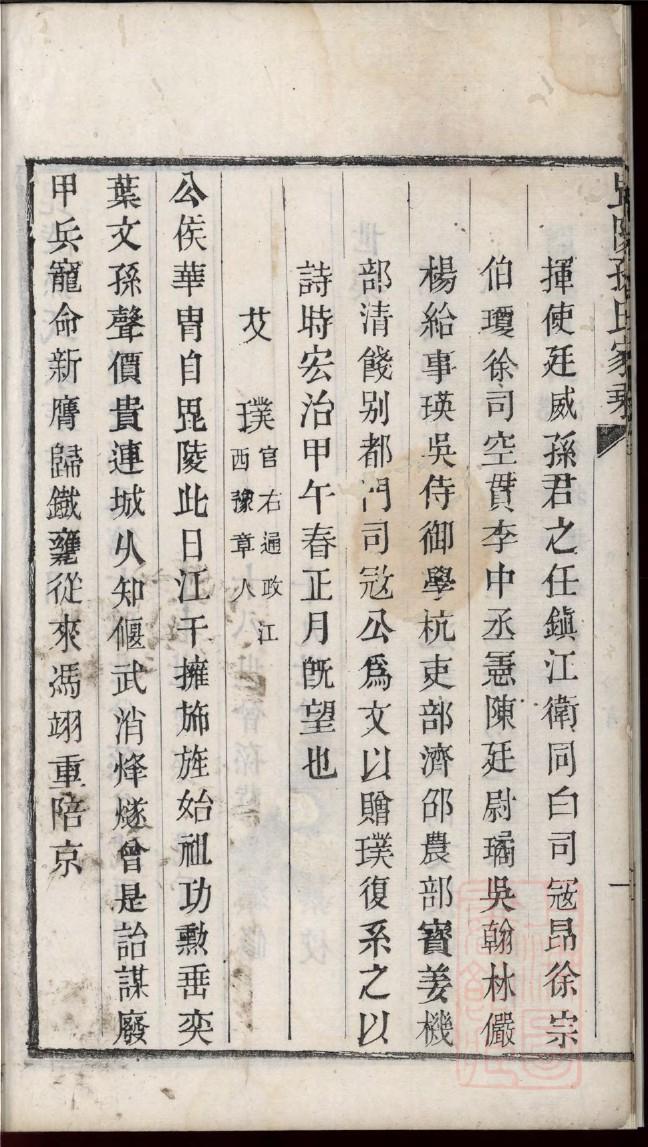 毘陵孫氏家乘
一
揮使廷威孫君之任鎮江衛同白司寇昂徐宗
伯瓊徐司空貫李中丞蕙陳廷尉璚吳翰林儼
楊給事瑛吳侍御學杭吏部濟邵農部寳姜機
部清餞别都門司寇公爲文以贈璞復系之以
詩時宏治甲午春正月旣望也
艾璞官右通政江
西豫章人
公侯華冑自毘陵此日江干擁斾旌始祖功勲垂奕
葉文孫聲價貴連城从知偃武消烽燧曾是詒謀廢
甲兵寵命新膺歸鐵甕從來馮翊重陪京